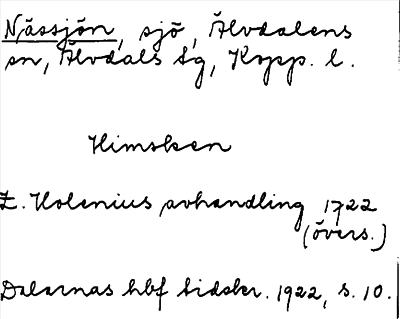 Nässjön, sjö, Älvdalens
sn, Älvdals tg, Kopp. l.
Himsken
E. Holenius avhandling 1722
(övers.)
Dalarnas hbf tidskr. 1922, s. 10.